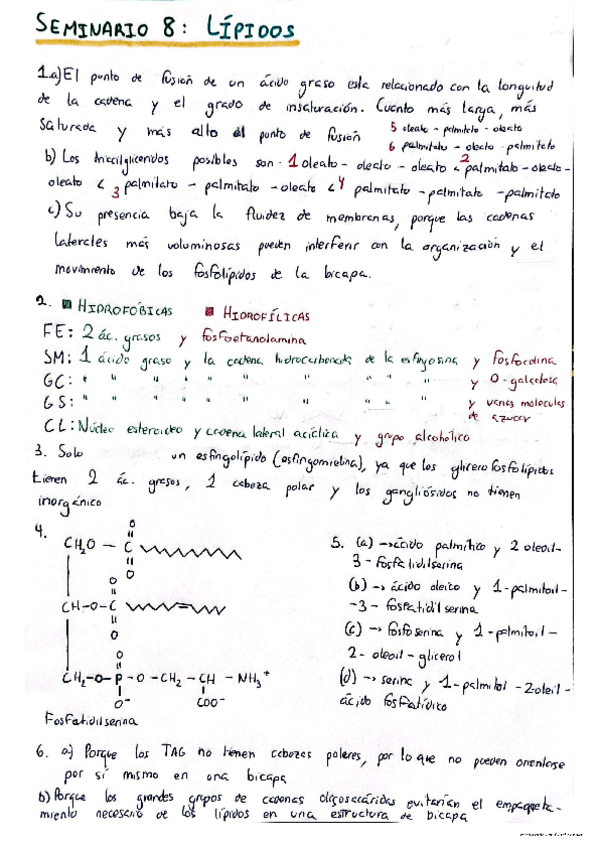 SEMINARIO 8: LÍPIDOS
1.a) El punto de fusión de un ácido graso esta relacionado con la longuitud
de la cadena y el grado de insaturación. Cuanto más larga, más
saturada y más alto el punto de fusión
5 oleato - palmitato - oleato
6 palmitato - oleato - palmitato
b) Los triacilgliceridos posibles son 1 oleato - oleato - oleato < 2 palmitato - oleato -
oleato < 3 palmitato - palmitato - oleato < 4 palmitato - palmitato - palmitato
c) Su presencia baja la fluidez de membranas, porque las cadenas
laterales más voluminosas pueden interferir con la organización y el
movimiento de los fosfolípidos de la bicapa.
2. HIDROFÓBICAS HIDROFÍLICAS
FE: 2 ác. grasos y fosfoetanolamina
SM: 1 ácido graso y la cadena hidrocarbonada de la esfingosina y fosfocolina
GC: " " " " " " " " " y O-galactosa
GS: " " " " " " " " " y varias moleculas
de azucar
CL: Núcleo esteroideo y cadena lateral acíclica y grupo alcohólico
3. Solo un esfingolípido (esfingomielina), ya que los glicerofosfolípidos
tienen 2 ác. grasos, 1 cabeza polar y los gangliósidos no tienen
inorgánico
4.
O
CH2O - C
O
O
CH-O-C
O
O
CH2-O-P-O-CH2-CH-NH3+
O- COO-
Fosfatidilserina
5. (a) → ácido palmítico y 2 oleoil-
3-fosfatidilserina
(b) → ácido oleico y 1-palmitoil-
-3-fosfatidil serina
(c) → fosfoserina y 1-palmitoil-
2-oleoil-glicerol
(d) → serina y 1-palmitol-2oleil-
ácido fosfatídico
6. a) Porque los TAG no tienen cabezas polares, por lo que no pueden orientarse
por sí mismo en una bicapa
b) Porque los grandes grupos de cadenas oligosacáridas evitarían el empaqueta-
miento necesario de los lípidos en una estructura de bicapa